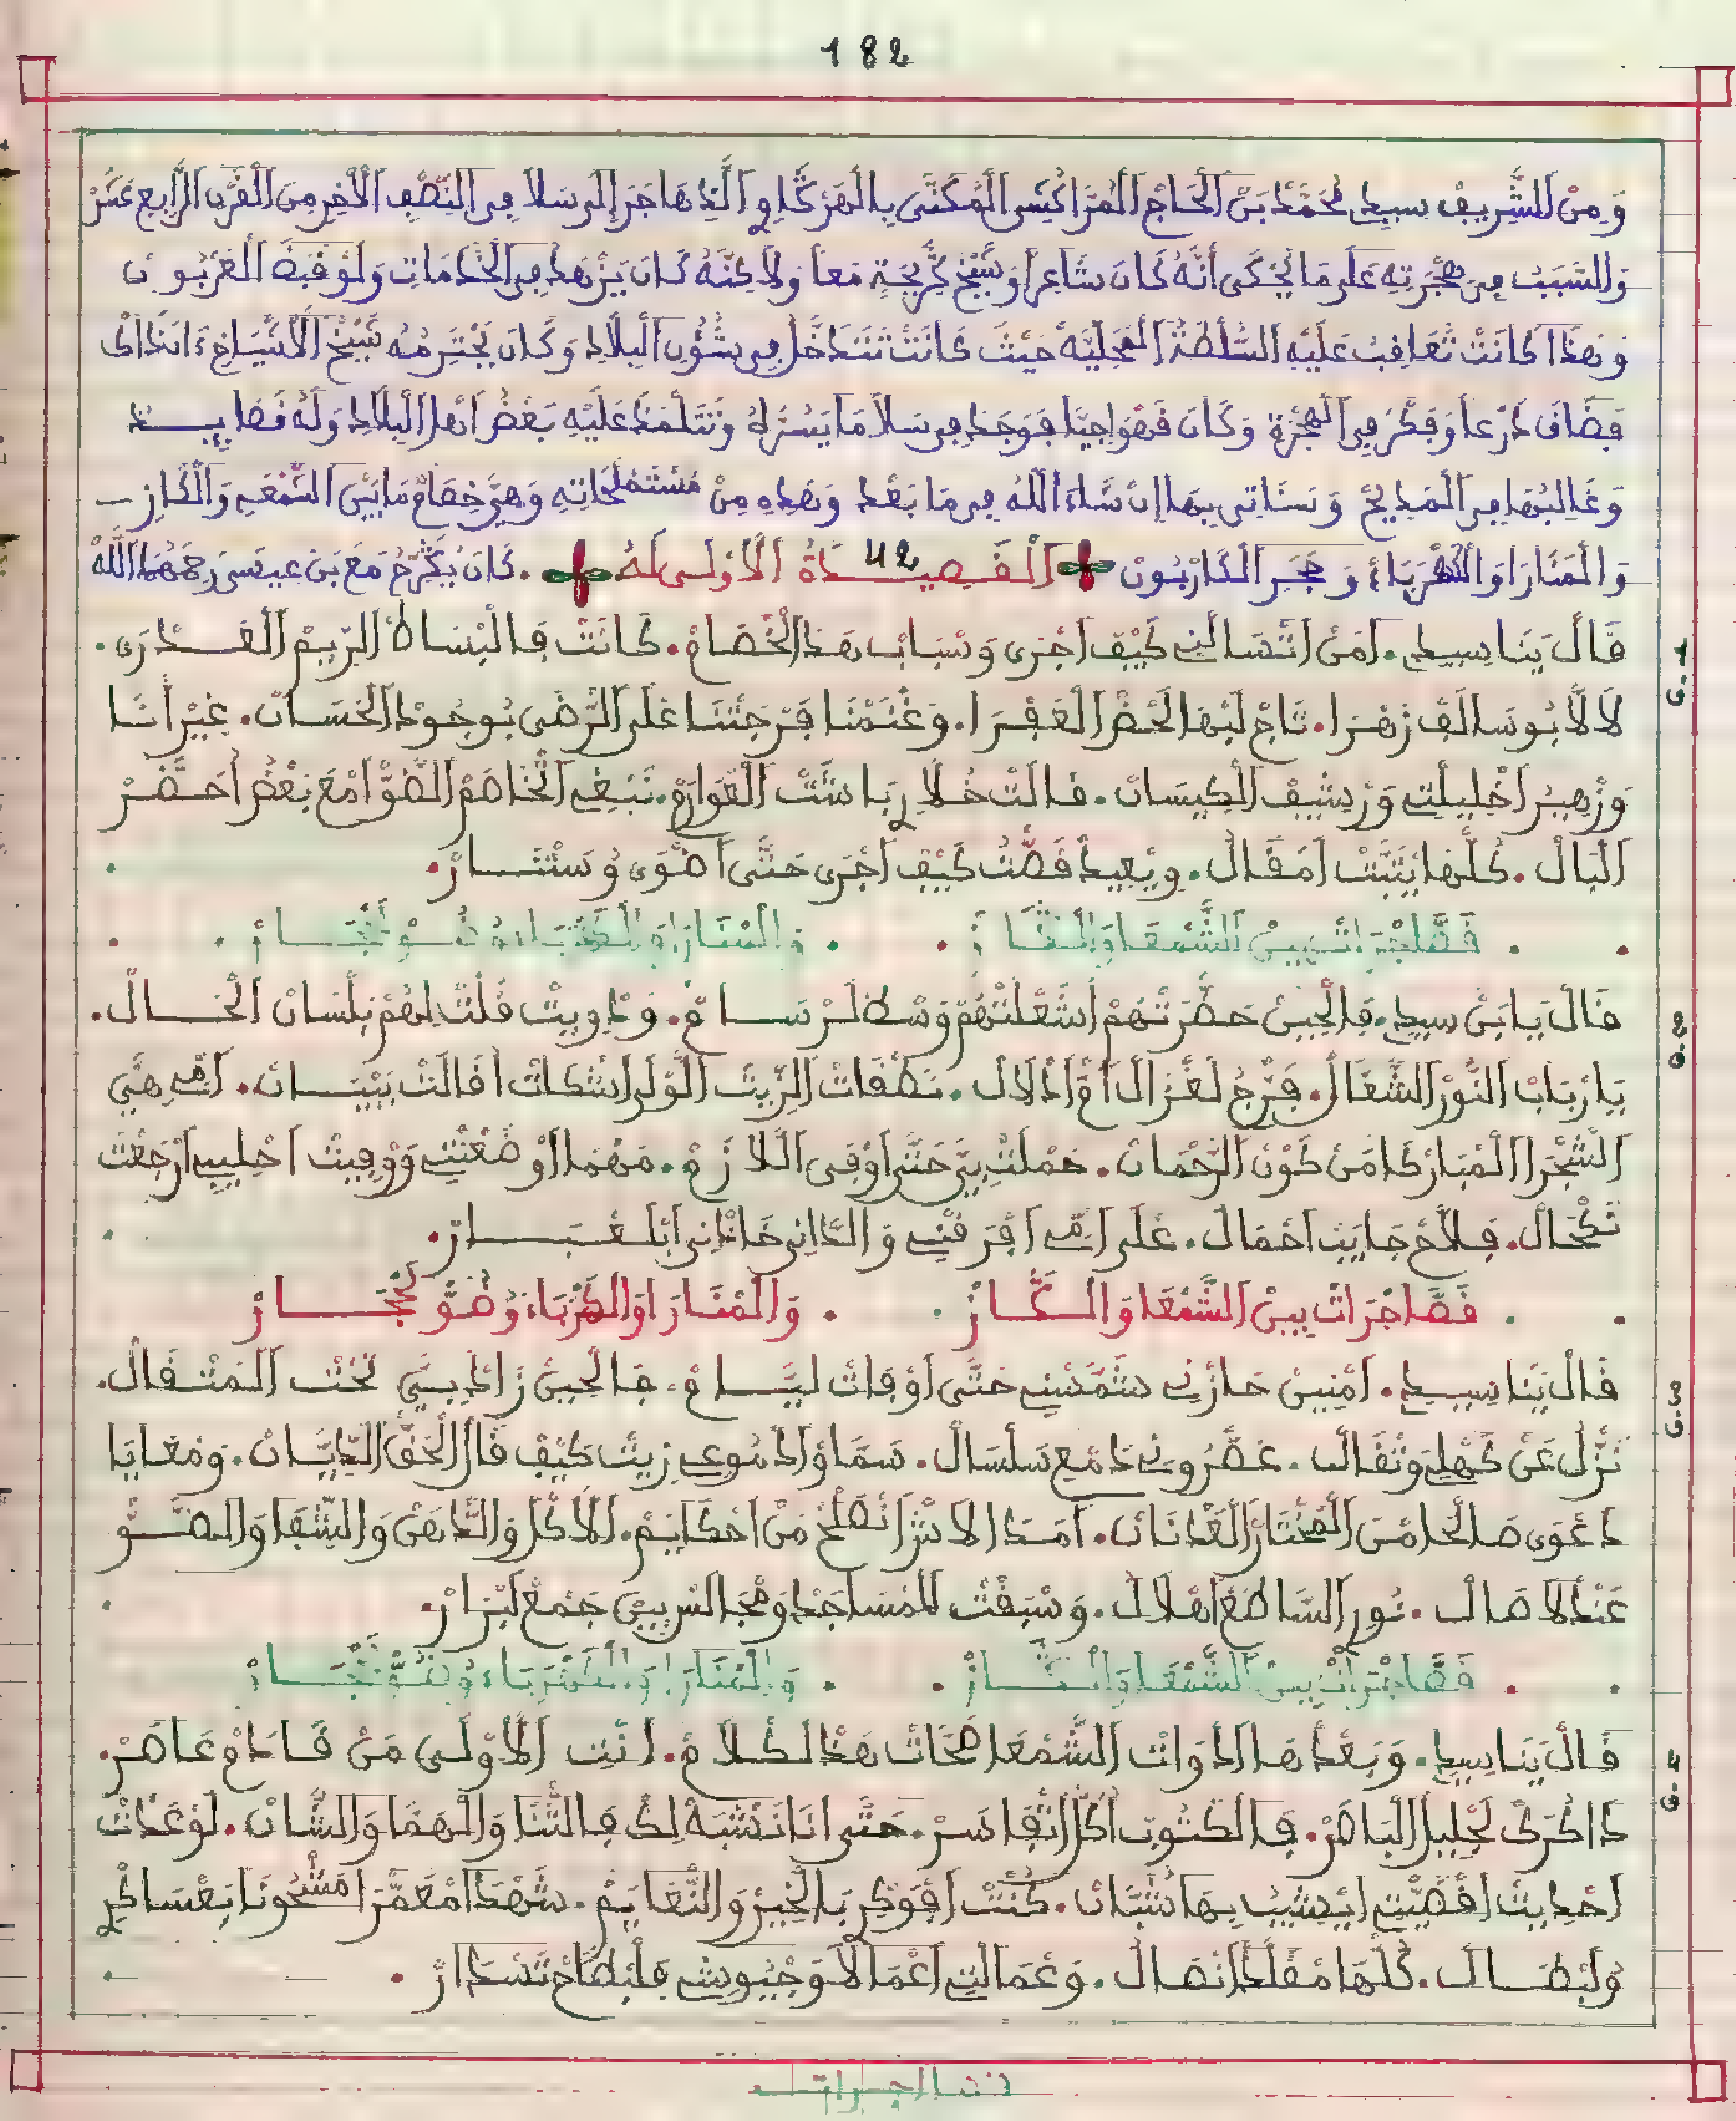 182
وَمِنَ الشَّرِيفْ سيدِي مُحَمَّدْ بَنْ الْحَاجْ الْمُرَاكُشي الْمُكَنَّى بِالْهَرْكَاوِي الَّذِي هَاجَرَ إِلَى سَلَا فِي النِّصْفِ الْأَخِيرِ مِنَ الْقَرْنِ الرَّابِعِ عَشَرْ
وَالسَّبَبُ فِي هِجْرَتِهِ عَلَى مَا يُحْكَى أَنَّهُ كَانَ شَاعِراً وَشَيْخَ كْرِيحَةٍ مَعاً وَلَاكِنَّهُ كَانَ يَزْهَدُ فِي الْخَدَامَاتِ وَلَوْ قَبَضَ الْعَرْبُونَ
وَبِهَذَا كَانَتْ تُعَاقِبُ عَلَيْهِ السُّلْطَةُ الْمَحَلِّيَّةُ حَيْثُ كَانَتْ تَتَدَاخَلُ فِي شُؤُنِ الْبِلَادِ وَكَانَ يَحْتَرِمُهُ شَيْخُ الْأَشْيَاخِ ءَانَذَاكْ
فَضَاقَ ذَرْعاً وَفَكَّرَ فِي الْهِجْرَةِ وَكَانَ قَهْوَاجِيّاً فَوَجَدَ فِي سَلَا مَا يَسُرُّهُ وَتَتَلْمَذَ عَلَيْهِ بَعْضُ أَهْلِ الْبِلَادِ وَلَهُ قَصَايِدْ
وَغَالِبُهَا فِي الْمَدِيحْ وَسَنَاتِي بِهَا إِنْ شَاءَ اللَّهُ فِي مَا بَعْدُ وَهَذِهِ مِنْ مُسْتَمْلَحَاتِهِ وَهِيَ خِصَامْ مَا بَيْنَ الشَّمْعَةِ وَالْكَازِ
وَالْمَنَارَا وَالْكَهْرَبَاءُ وَحَجَرَ الْكَارْبُونْ الْقَصِيدَةُ 42 الْأُولَى لَهُ كَانَ يَكْرَحُ مَعَ بَنْ عِيسَى رَحِمَهُمَا اللَّهُ
ق.1 قَالْ يَنَا سِيدِي. أَمَنْ اتْسَالْنِي كَيْفْ اجْرَى وَسْبَابْ هَذَا الْخْصَامْ. كَانَتْ فَالْبْسَاطْ الرِّيمْ الْعَدْرَى.
لَالَّا بُوسَالَفْ زَهْرَا. تَاجْ لِيهَا لَحْضَرْ الْعَفْرَا. وَغْنَمْنَا فَرْجَتْنَا عْلَى الرّْضَى بُوجُودْ الْحَسَانْ. غِيرْ أَنَا
وَزْهِيرْ اخْلِيلْتِي وَرْشِيفْ الْكِيسَانْ. قَالَتْ خُلَّا رَبَاشَتْ الْعْوَارَمْ. نَبْغِي الْخَاصَمْ الضَّوّْ امْعَ بَعْضْ أَحَضْرْ
الْبَالْ. كُلّْهَا يَثْبَتْ امْقَالْ. وِيْعِيدْ قَصْتُ كِيفْ اجْرَى حَتَّى اضْوَى وُسْتَنَارْ.
قَصَّا جْرَاتْ بِينْ الشَّمْعَا وَالْكَازْ. وَالْمْنَارَا وَالْكَهْرَبَاءُ وُضَوّْ لَحْجَارْ
ق.2 قَالْ يَابَنْ سِيدِي. فَالْحِينْ حَضَّرْتْهُمْ اشْعَلْتْهُمْ وَسْطْ الَرْسَامْ. وَدْوِيتْ قُلْتْ لِهُمْ بِلْسَانْ الْحَالْ.
يَا رْبَابْ النُّورْ الشَّعَّالْ. فَرّْجُ لَغْزَالْ امّْ ادْلَالْ. نَطْقَاتْ الزِّيتْ الُّولَى اشْكَاتْ اقَالَتْ بَيْيَانْ. امِّي هِيَّ
الشَّجْرَا الْمُبَارْكَا مَنْ كَوْنْ الرَّحْمَانْ. حَمْلَتْ بِيَّ حَتَّى اوْفَى الَّلازَمْ. مَهْمَا اوْضْعَتْنِي وَوْفِيتْ احْلِيبِي ارْجَعْتْ
نَكْحَالْ. فَلَّاحْ جَايَبْ احْمَالْ. عْلَى امِّي افْرَقْنِي وَالدَّانِي خَادْنِي ابْلَغْبَارْ.
قَصَّا جْرَاتْ بِينْ الشَّمْعَا وَالْكَازْ. وَالْمْنَارَا وَالْكَهْرَبَاءُ وُضَوّْ لَحْجَارْ
ق.3 قَالْ يَنَا سِيدِي. امْنِينْ حَازْنِي شَمَّسْنِي حَتَّى اوْفَاتْ لِيَّامْ. فَالْحِينْ زَادْ بِيَّ تَحْتْ الْمَتْقَالْ.
نَزَّلْ عَنْ كَهْلِي وَتْقَالْ. عَصْرُونِي دَمْعْ سَلْسَالْ. سَمَّاوْ ادْمُوعِي زِيتْ كِيفْ قَالْ الْحَقّْ الدِّيَّانْ. وَمْعَايَا
دَعْوَى صَالْحَا مْنَ الْمُخْتَارْ الْعَدْنَانْ. أَمَدَا لَاشْ انْصْلَحْ مَنْ احْكَايَمْ. لَلَّاكْلْ وَالدّْهَنْ وَالشّْفَا وَالضَّوّْ
عَنْدْ لَاصَالْ. نُورِي السَّاطَعْ اهْلَالْ. وَسْبَقْتْ لَلْمْسَاجَدْ وَمْجَالْسْ بِيَّ جَمْعْ لَبْزَارْ.
قَصَّا جْرَاتْ بِينْ الشَّمْعَا وَالْكَازْ. وَالْمْنَارَا وَالْكَهْرَبَاءُ وُضَوّْ لَحْجَارْ
ق.4 قَالْ يَنَا سِيدِي. وَبَعْدْهَا ادْوَاتْ الشَّمْعَا ضَحْكَاتْ هَذْ لَكْلَامْ. انْتِ الْأُولَى مَنْ قَادَمْ عَاصَرْ.
دَاكْرَكْ لَجْلِيلْ الْبَاصَرْ. فَالْكْتُوبْ اكُلّْ اتْفَاسَرْ. حَتَّى انَا نَتْشَبَّهْ لِكْ فَالثَّنَا وَالْهَمَّا وَالشَّانْ. لَوْ عَدْتْ
احْدِيتْ اقْصَّتِي ايْشِيبْ بِهَا شُبَّانْ. كُنْتْ افْوَكْرِي بَالْخِيرْ وَالنّْعَايَمْ. شَهْدَا مْعَمّْرَا مَشْحُونَا بَعْسَاكْرِي
وُلَبْطَالْ. كُلّْهَا مْقَلَّدْ انْصَالْ. وَعْمَالْتِي اعْمَالَا وَجْيُوشِي فَلْبْطَاحْ تَسْدَارْ
قصا اجرات